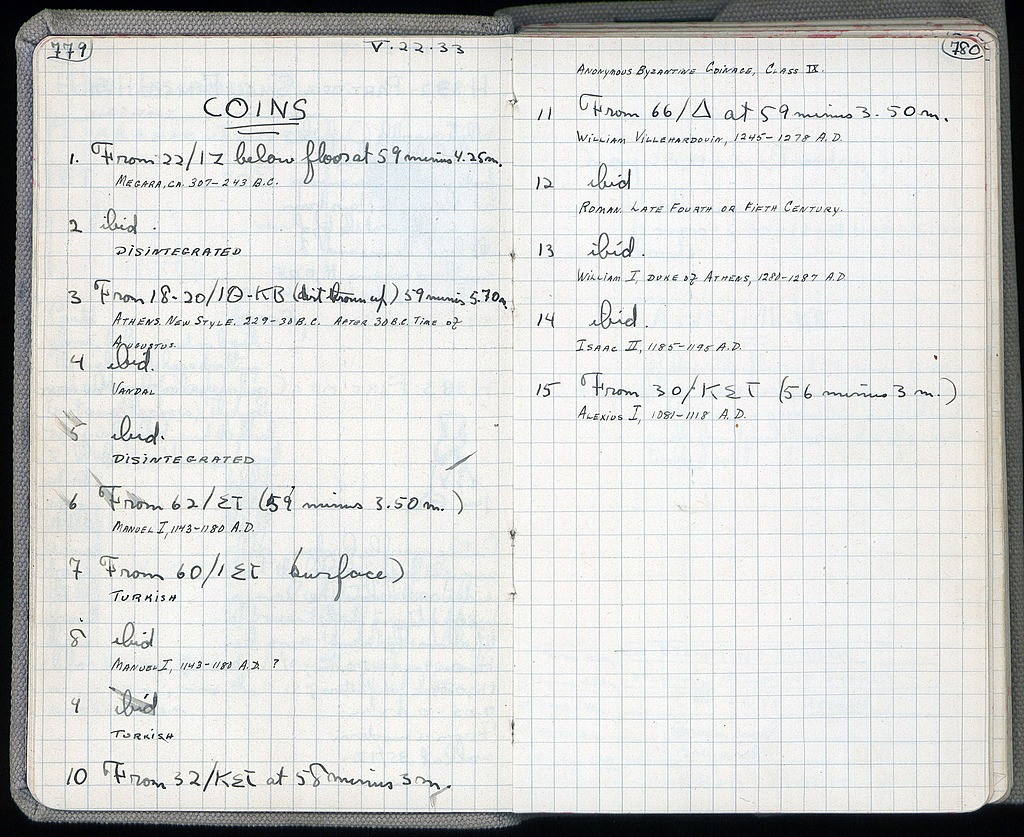 779
V.22.33
COINS
1. From 22/ΙΖ below floor at 59 minus 4.25m.
MEGARA, CA. 307-243 B.C.
2 ibid.
DISINTEGRATED
3 From 18-20/ΙΘ-ΚΒ (dirt thrown up) 59 minus 5.70m
ATHENS. NEW STYLE. 229-30 B.C. AFTER 30 B.C. TIME OF
AUGUSTUS.
4 ibid.
VANDAL
5 ibid.
DISINTEGRATED
6 From 62/ΣΤ (59 minus 3.50m.)
MANUEL I, 1143-1180 A.D.
7 From 60/ΙΣΤ (surface)
TURKISH
8 ibid
MANUEL I, 1143-1180 A.D. ?
9 ibid
TURKISH
10 From 32/ΚΣΤ at 58 minus 3m.
780
ANONYMOUS BYZANTINE COINAGE, CLASS IX.
11 From 66/Δ at 59 minus 3.50m.
WILLIAM VILLEHARDOUIN, 1245-1278 A.D.
12 ibid
ROMAN. LATE FOURTH OR FIFTH CENTURY.
13 ibid.
WILLIAM I, DUKE OF ATHENS, 1280-1287 A.D
14 ibid.
ISAAC II, 1185-1195 A.D.
15 From 30/ΚΣΤ (56 minus 3m.)
ALEXIUS I, 1081-1118 A.D.